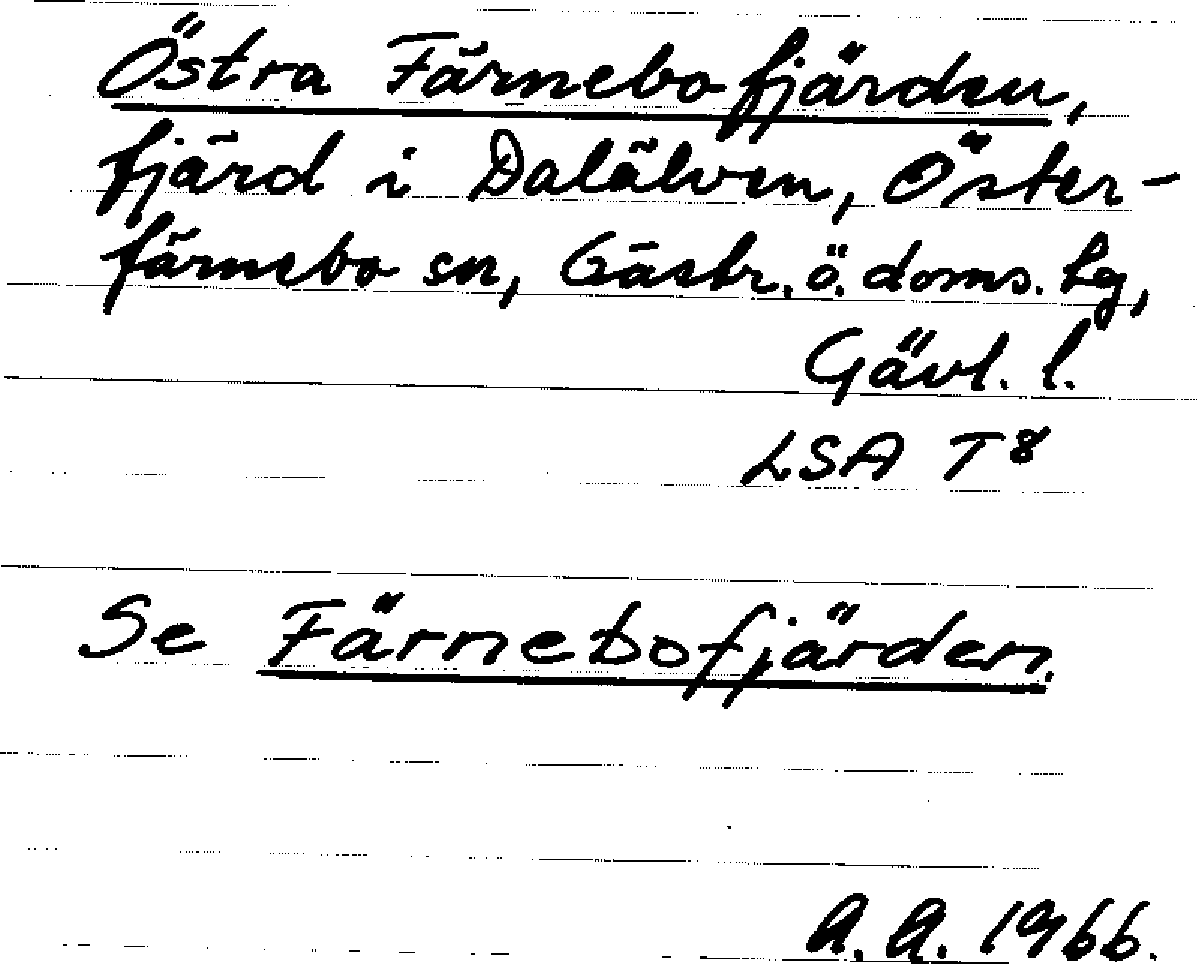 Östra Färnebofjärden,
fjärd i Dalälven, Öster-
färnebo sn, Gästr. ö. doms. hg,
Gävl. l.
LSA T 8
Se Färnebofjärden.
A. A. 1966.